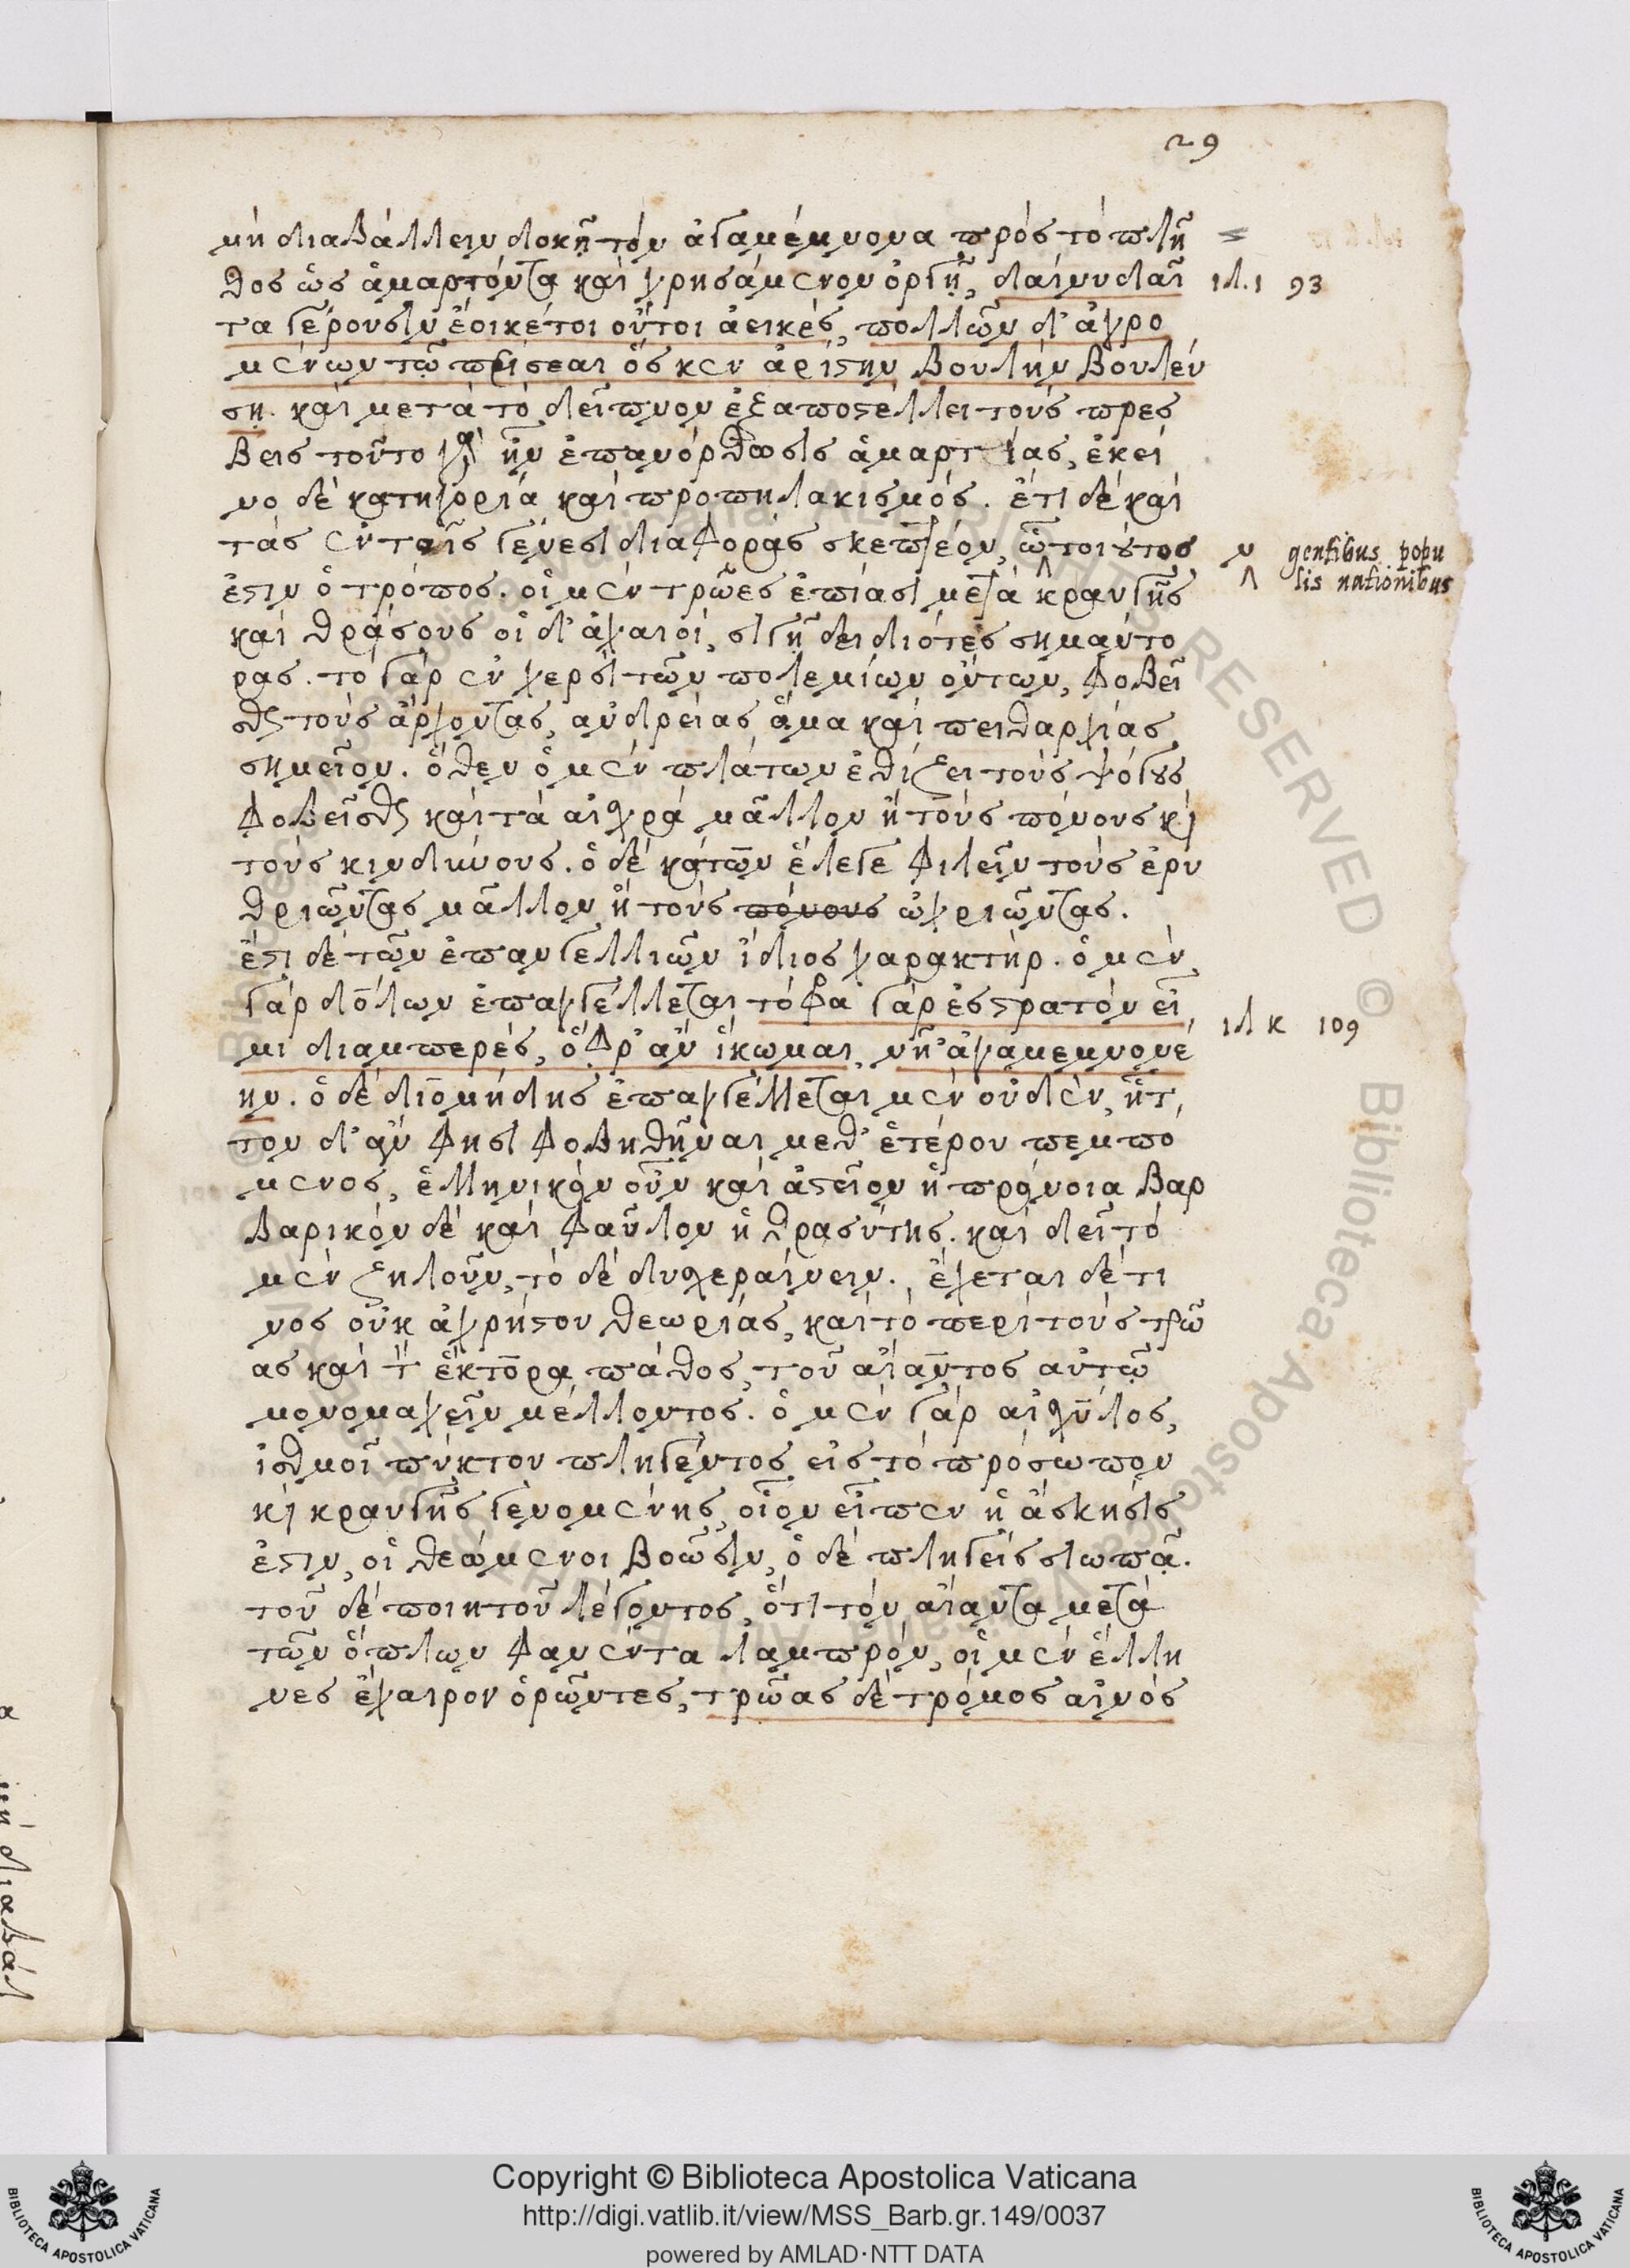 29
μὴ διαβάλλειν δοκῇ τὸν ἀγαμέμνονα πρὸς τὸ πλῆ
θος ὡς ἁμαρτόντα καὶ χρησάμενον ὀργῇ, δαίνυ δαῖ ιλ. ι 93
τα γέρουσιν ἔοικέ τοι οὔτοι ἀεικὲς, πολλῶν δ' ἀγρο
μένων τῷ πείσεαι ὅς κεν ἀρίστην βουλὴν βουλεύ
σῃ. καὶ μετὰ τὸ δεῖπνον ἐξαποστέλλει τοὺς πρες
βεις τοῦτο γὰρ ἦν ἐπανόρθωσις ἁμαρτίας, ἐκεῖ
νο δὲ κατηγορία καὶ προπηλακισμός. ἔτι δὲ καὶ
τὰς ἐν ταῖς γένεσι διαφορὰς σκεπτέον, ὧν τοιοῦτος
ν gentibus popu
lis nationibus
ἐστιν ὁ τρόπος. οἱ μὲν τρῶες ἐπίασι μετὰ κραυγῆς
καὶ θράσους οἱ δ' ἀχαιοὶ, σιγῇ δειδιότες σημάντο
ρας. τὸ γὰρ ἐν χερσὶ τῶν πολεμίων ὄντων, φοβεῖ
σθαι τοὺς ἄρχοντας, ἀνδρείας ἅμα καὶ πειθαρχίας
σημεῖον. ὅθεν ὁ μὲν πλάτων ἐθίζει τοὺς ψόγους
φοβεῖσθαι καὶ τὰ αἰσχρὰ μᾶλλον ἢ τοὺς πόνους καὶ
τοὺς κινδύνους. ὁ δὲ κάτων ἔλεγε φιλεῖν τοὺς ἐρυ
θριῶντας μᾶλλον ἢ τοὺς πόνους ὠχριῶντας.
ἔστι δὲ τῶν ἐπαγγελλιῶν ἴδιος χαρακτήρ. ὁ μὲν
γὰρ δόλων ἐπαγγέλλεται τόφρα γὰρ ἐς στρατὸν εἶ
ιλ κ 109
μι διαμπερές, ὄφρ' ἂν ἵκωμαι, νῆ' ἀγαμεμνονέ
ην. ὁ δὲ διομήδης ἐπαγγέλλεται μὲν οὐδὲν, ἧτ
τον δ' ἂν φησὶ φοβηθῆναι μεθ' ἑτέρου πεμπό
μενος, ἑλληνικὸν οὖν καὶ ἀστεῖον ἡ πρόνοια βαρ
βαρικὸν δὲ καὶ φαῦλον ἡ θρασύτης. καὶ δεῖ τὸ
μὲν ζηλοῦν, τὸ δὲ δυσχεραίνειν. ἔχεται δέ τι
νος οὐκ ἀχρήστου θεωρίας, καὶ τὸ περὶ τοὺς τρῶ
ας καὶ τὸν ἕκτορα πάθος, τοῦ αἴαντος αὐτῷ
μονομαχεῖν μέλλοντος. ὁ μὲν γὰρ αἰσχύλος,
ἰσθμοῖ πύκτου πληγέντος εἰς τὸ πρόσωπον
καὶ κραυγῆς γενομένης, οἷον εἶπεν ἡ ἄσκησίς
ἐστιν, οἱ θεώμενοι βοῶσιν, ὁ δὲ πληγεὶς σιωπᾷ.
τοῦ δὲ ποιητοῦ λέγοντος, ὅτι τὸν αἴαντα μετὰ
τῶν ὅπλων φανέντα λαμπρὸν, οἱ μὲν ἕλλη
νες ἔχαιρον ὁρῶντες, τρῶας δὲ τρόμος αἰνὸς
Copyright © Biblioteca Apostolica Vaticana
http://digi.vatlib.it/view/MSS_Barb.gr.149/0037
powered by AMLAD·NTT DATA
BIBLIOTECA APOSTOLICA VATICANA
BIBLIOTECA APOSTOLICA VATICANA